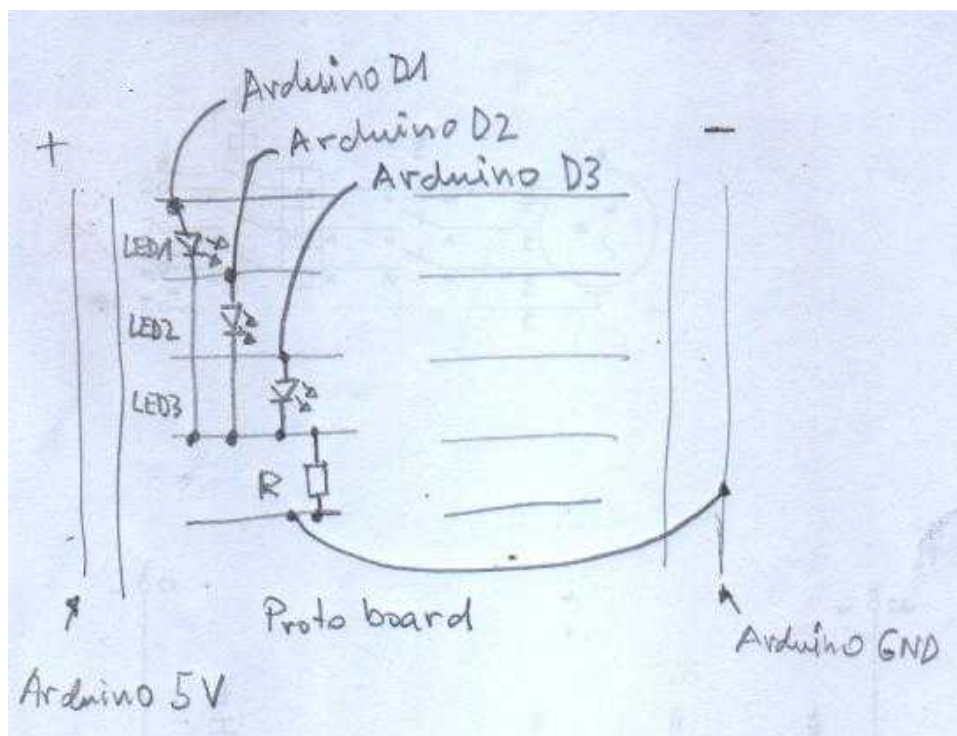 Arduino D1
Arduino D2
+
-
Arduino D3
LED1
LED2
LED3
R
Proto board
Arduino GND
Arduino 5V